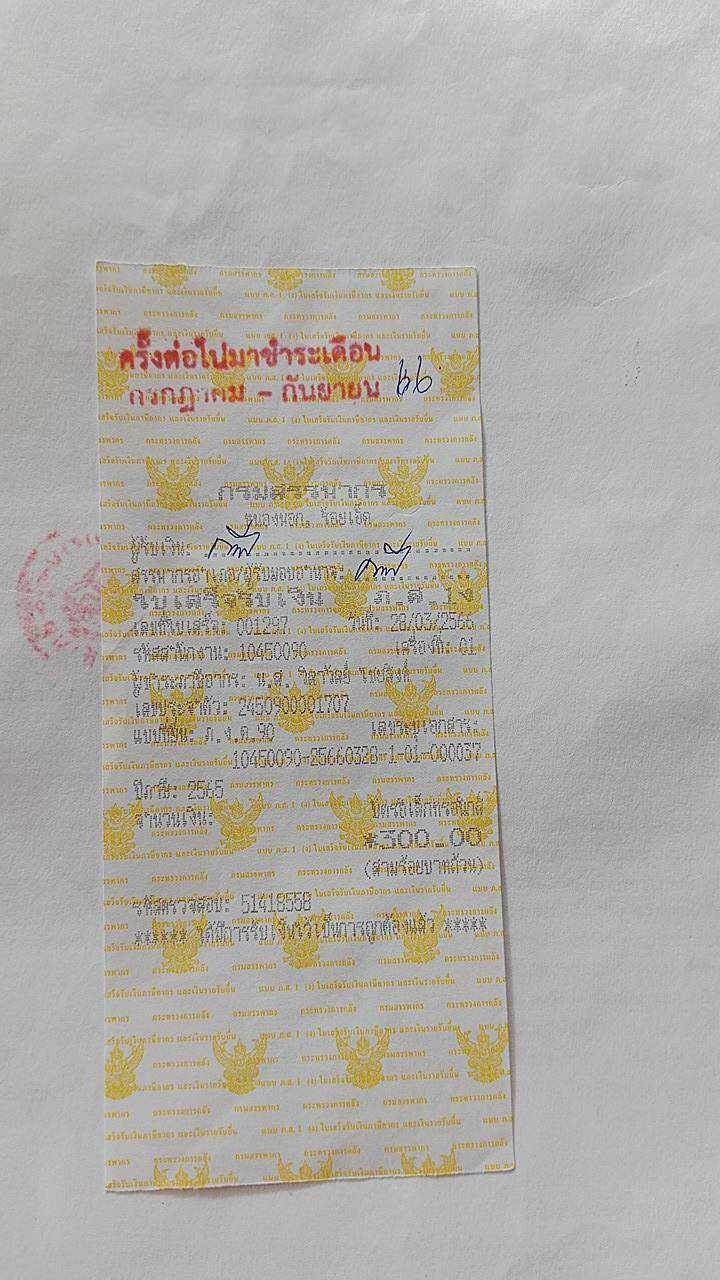 ครั้งต่อไปมาชำระเดือน
กรกฎาคม - กันยายน 66
กรมสรรพากร
หนองพอก, ร้อยเอ็ด
ผู้รับเงิน:
สรรพากรอำเภอ/ผู้รับมอบอำนาจ:
ใบเสร็จรับเงิน ภ.ส.1จ
เลขที่ใบเสร็จ: 001297 วันที่: 28/03/2566
รหัสสำนักงาน: 10450090 เครื่องที่: 01
ผู้ชำระภาษีอากร: น.ส. วิลาวัลย์ ไชยสิงห์
เลขประจำตัว: 2450900001707
แบบที่ยื่น: ภ.ง.ด.90 เลขระบุเอกสาร:
10450090-25660328-1-01-000037
ปีภาษี: 2565
จำนวนเงิน: บัตรอิเล็กทรอนิกส์
*300.00
(สามร้อยบาทถ้วน)
รหัสตรวจสอบ: 51418558
****** ได้มีการรับเงินไว้เป็นการถูกต้องแล้ว *****